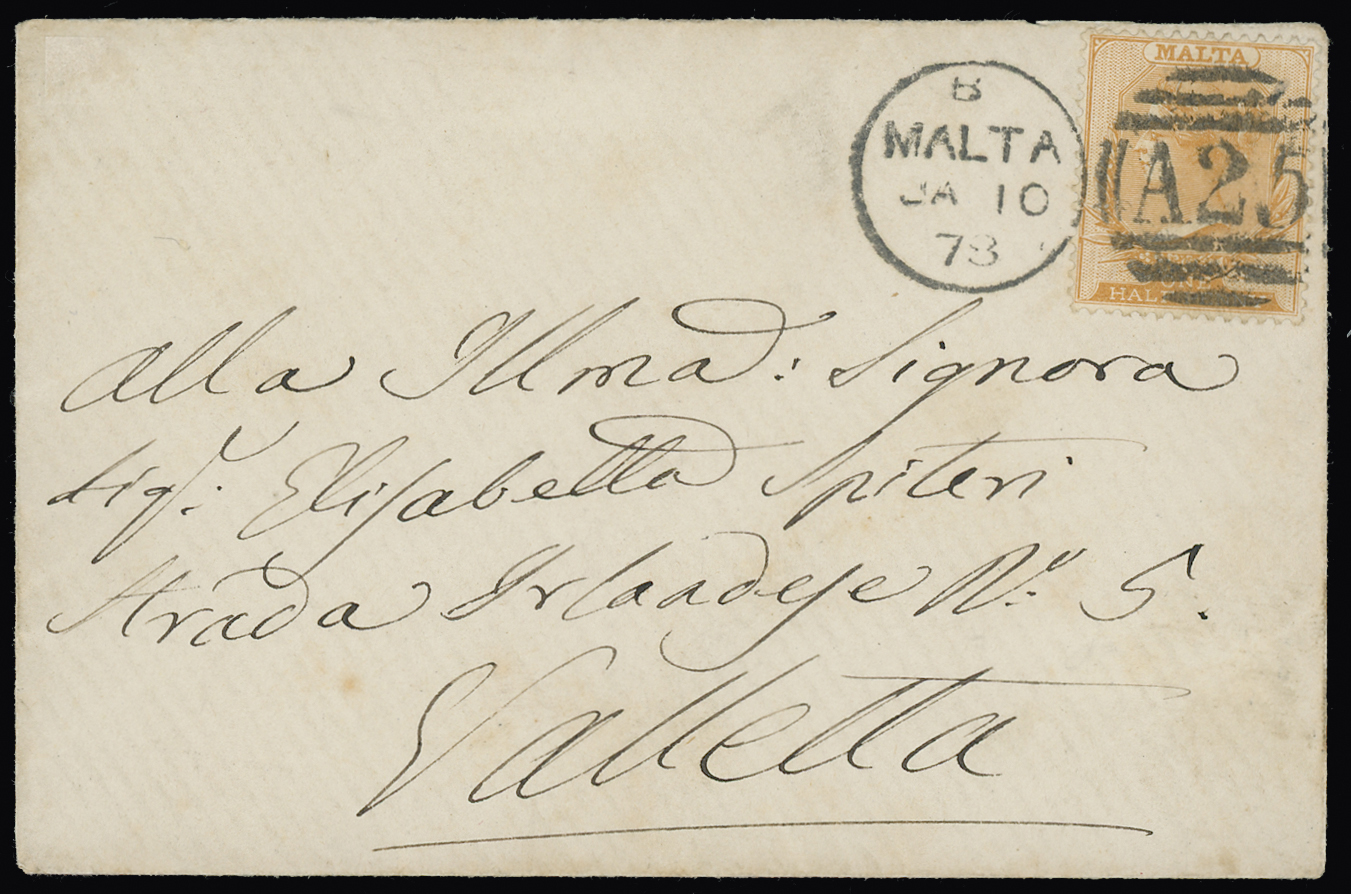 MALTA
B
MALTA
JA 10
78
A25
HAL
Alla Illma: Signora
Sigr: Elisabetta Spiteri
Strada Irlandese No: 5.
Valletta